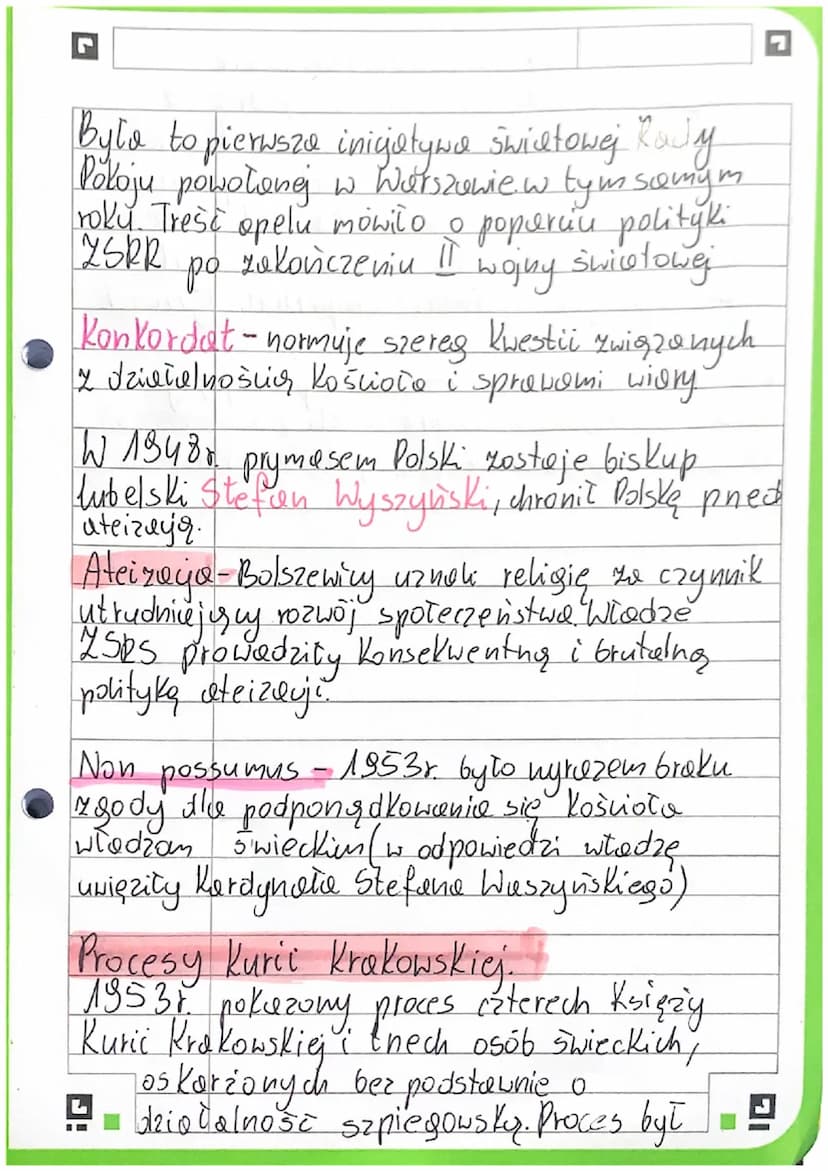 Była to pierwsza inicjatywa światowej Rady
Pokoju powołanej w Warszawie w tym samym
roku. Treść apelu mówiło o poparciu polityki
ZSRR po zakończeniu II wojny światowej
Konkordat - normuje szereg kwestii związanych
z działalnością Kościoła i sprawami wiary
W 1948r. prymasem Polski zostaje biskup
lubelski Stefan Wyszyński, chronił Polskę przed
ateizacją.
Ateizacja - Bolszewicy uznali religię za czynnik
utrudniejący rozwój społeczeństwa. Władze
ZSRS prowadziły konsekwentną i brutalną
politykę ateizacji.
Non possumus - 1953r. było wyrazem braku
zgody dla podporządkowania się Kościoła
władzom świeckim (w odpowiedzi władzę
uwięziły Kardynała Stefana Waszyńskiego)
Procesy Kurii Krakowskiej.
1953r. pokazowy proces czterech Księży
Kurii Krakowskiej i trzech osób świeckich,
oskarżonych bezpodstawnie o
działalność szpiegowską. Proces był